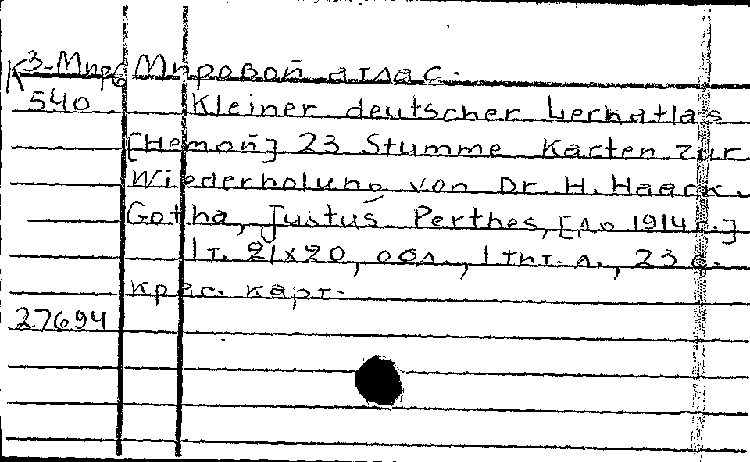 К3-Миро Мировой атлас.
540 Kleiner deutscher Lernatlas
[Немой] 23 Stumme Karten zur
Wiederholung von Dr. H. Haack.
Gotha, Justus Perthes, [до 1914 г.]
1 т. 21x20, обл., 1 тит. л., 23 с.
крас. карт.
27694